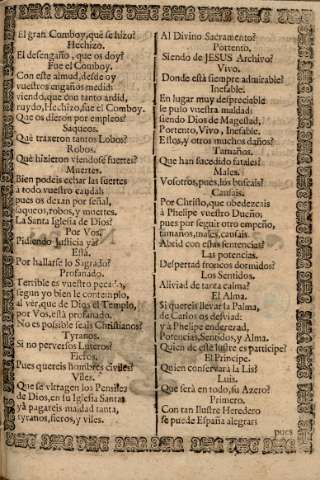 El gran Comboy, què se hizo?
Hechizo.
El desengaño, que os doy?
Fue el Comboy.
Con este almud, desde oy
vuestros engaños medid:
viendo, que con tanto ardid,
ruydo, Hechizo, fue el Comboy.
Que os dieron por empleos?
Saqueos.
Què traxeron tantos Lobos?
Robos.
Què hizieron viendose fuertes?
Muertes.
Bien podeis echar las suertes
à todo vuestro caudal:
pues os dexan por señal,
saqueos, robos, y muertes.
La Santa Iglesia de Dios?
Por Vos.
Pidiendo Justicia ya?
Està.
Por hallarse lo Sagrado?
Profanado.
Terrible es vuestro pecado,
segun yo bien le contemplo,
al vèr, que de Dios el Templo,
por Vos, està profanado.
No es possible seais Christianos?
Tyranos.
Si no perversos Luteros?
Fieros.
Pues quereis hombres civiles?
Viles.
Que se vltragen los Pensiles
de Dios, en su Iglesia Santa:
yà pagareis maldad tanta,
tyranos, fieros, y viles.
Al Divino Sacramento?
Portento.
Siendo de JESUS Archivo?
Vivo.
Donde està siempre admirable?
Inefable.
En lugar muy despreciable
le puso vuestra maldad:
siendo Dios de Magestad,
Portento, Vivo, Inefable.
Estos, y otros muchos daños?
Tamaños.
Que han sucedido fatales?
Males.
Vosotros, pues, los buscais?
Causais.
Por Christo, que obedezcais
à Phelipe vuestro Dueño;
pues por seguir otro empeño,
tamaños, males, causais.
Abrid con estas sentencias?
Las potencias.
Despertad troncos dormidos?
Los Sentidos.
Aliviad de tanta calma?
El Alma.
Si quereis llevar la Palma,
de Carlos os desviad:
y à Phelipe enderezad,
Potencias, Sentidos, y Alma.
Quien de este lustre es participe?
El Principe.
Quien conservarà la Lis?
Luis.
Que serà en todo, su Azero?
Primero.
Con tan Ilustre Heredero
se puede España alegrar:
pues